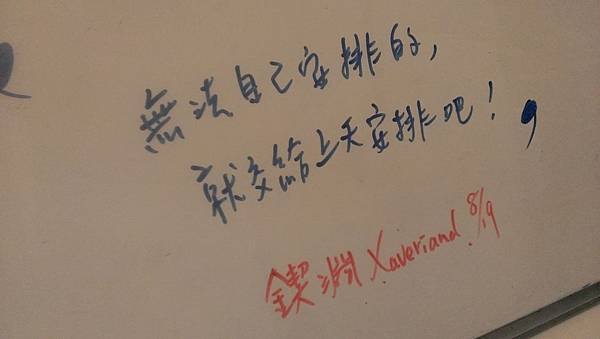 無法自己安排的,
就交給上天安排吧!
鍥淵 Xaveriand. 8/19